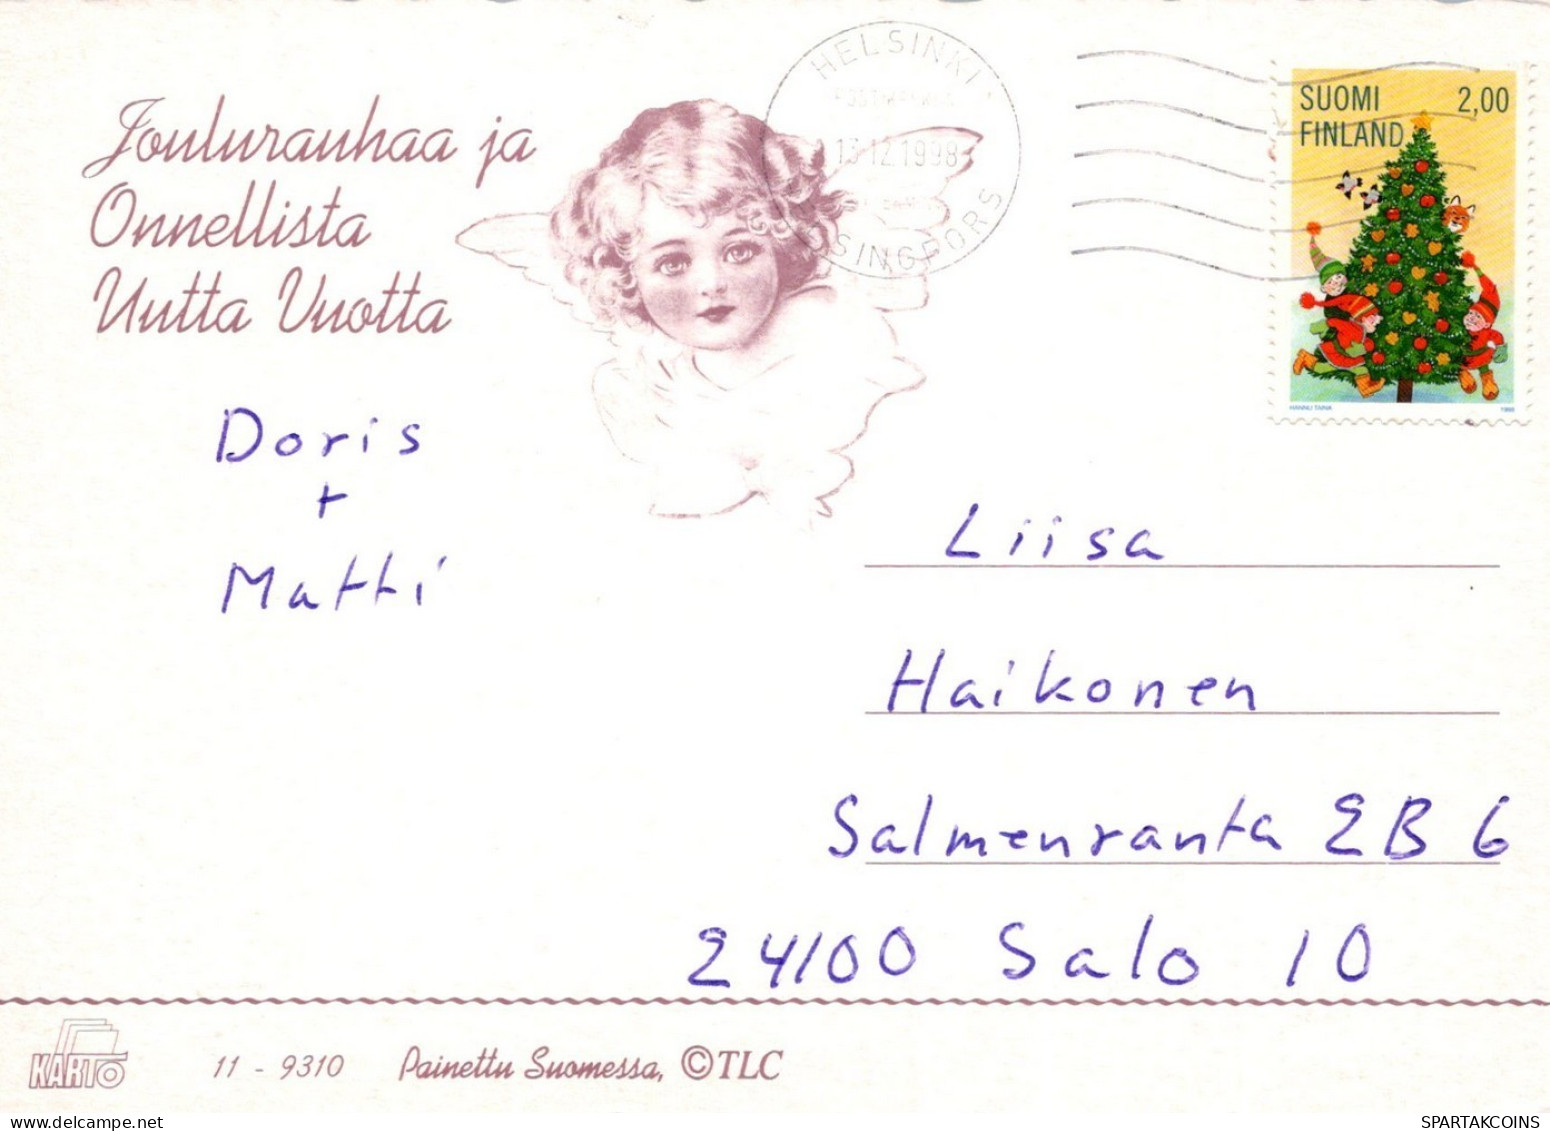 Joulurauhaa ja
Onnellista
Uutta Vuotta
HELSINKI
13.12.1998
SINGFORS
SUOMI 2,00
FINLAND
HANNU TAINA 1998
Doris
+
Matti
Liisa
Haikonen
Salmenranta 2B 6
24100 Salo 10
KARTO
11 - 9310 Painettu Suomessa, ©TLC
delcampe.net
SPARTAKCOINS